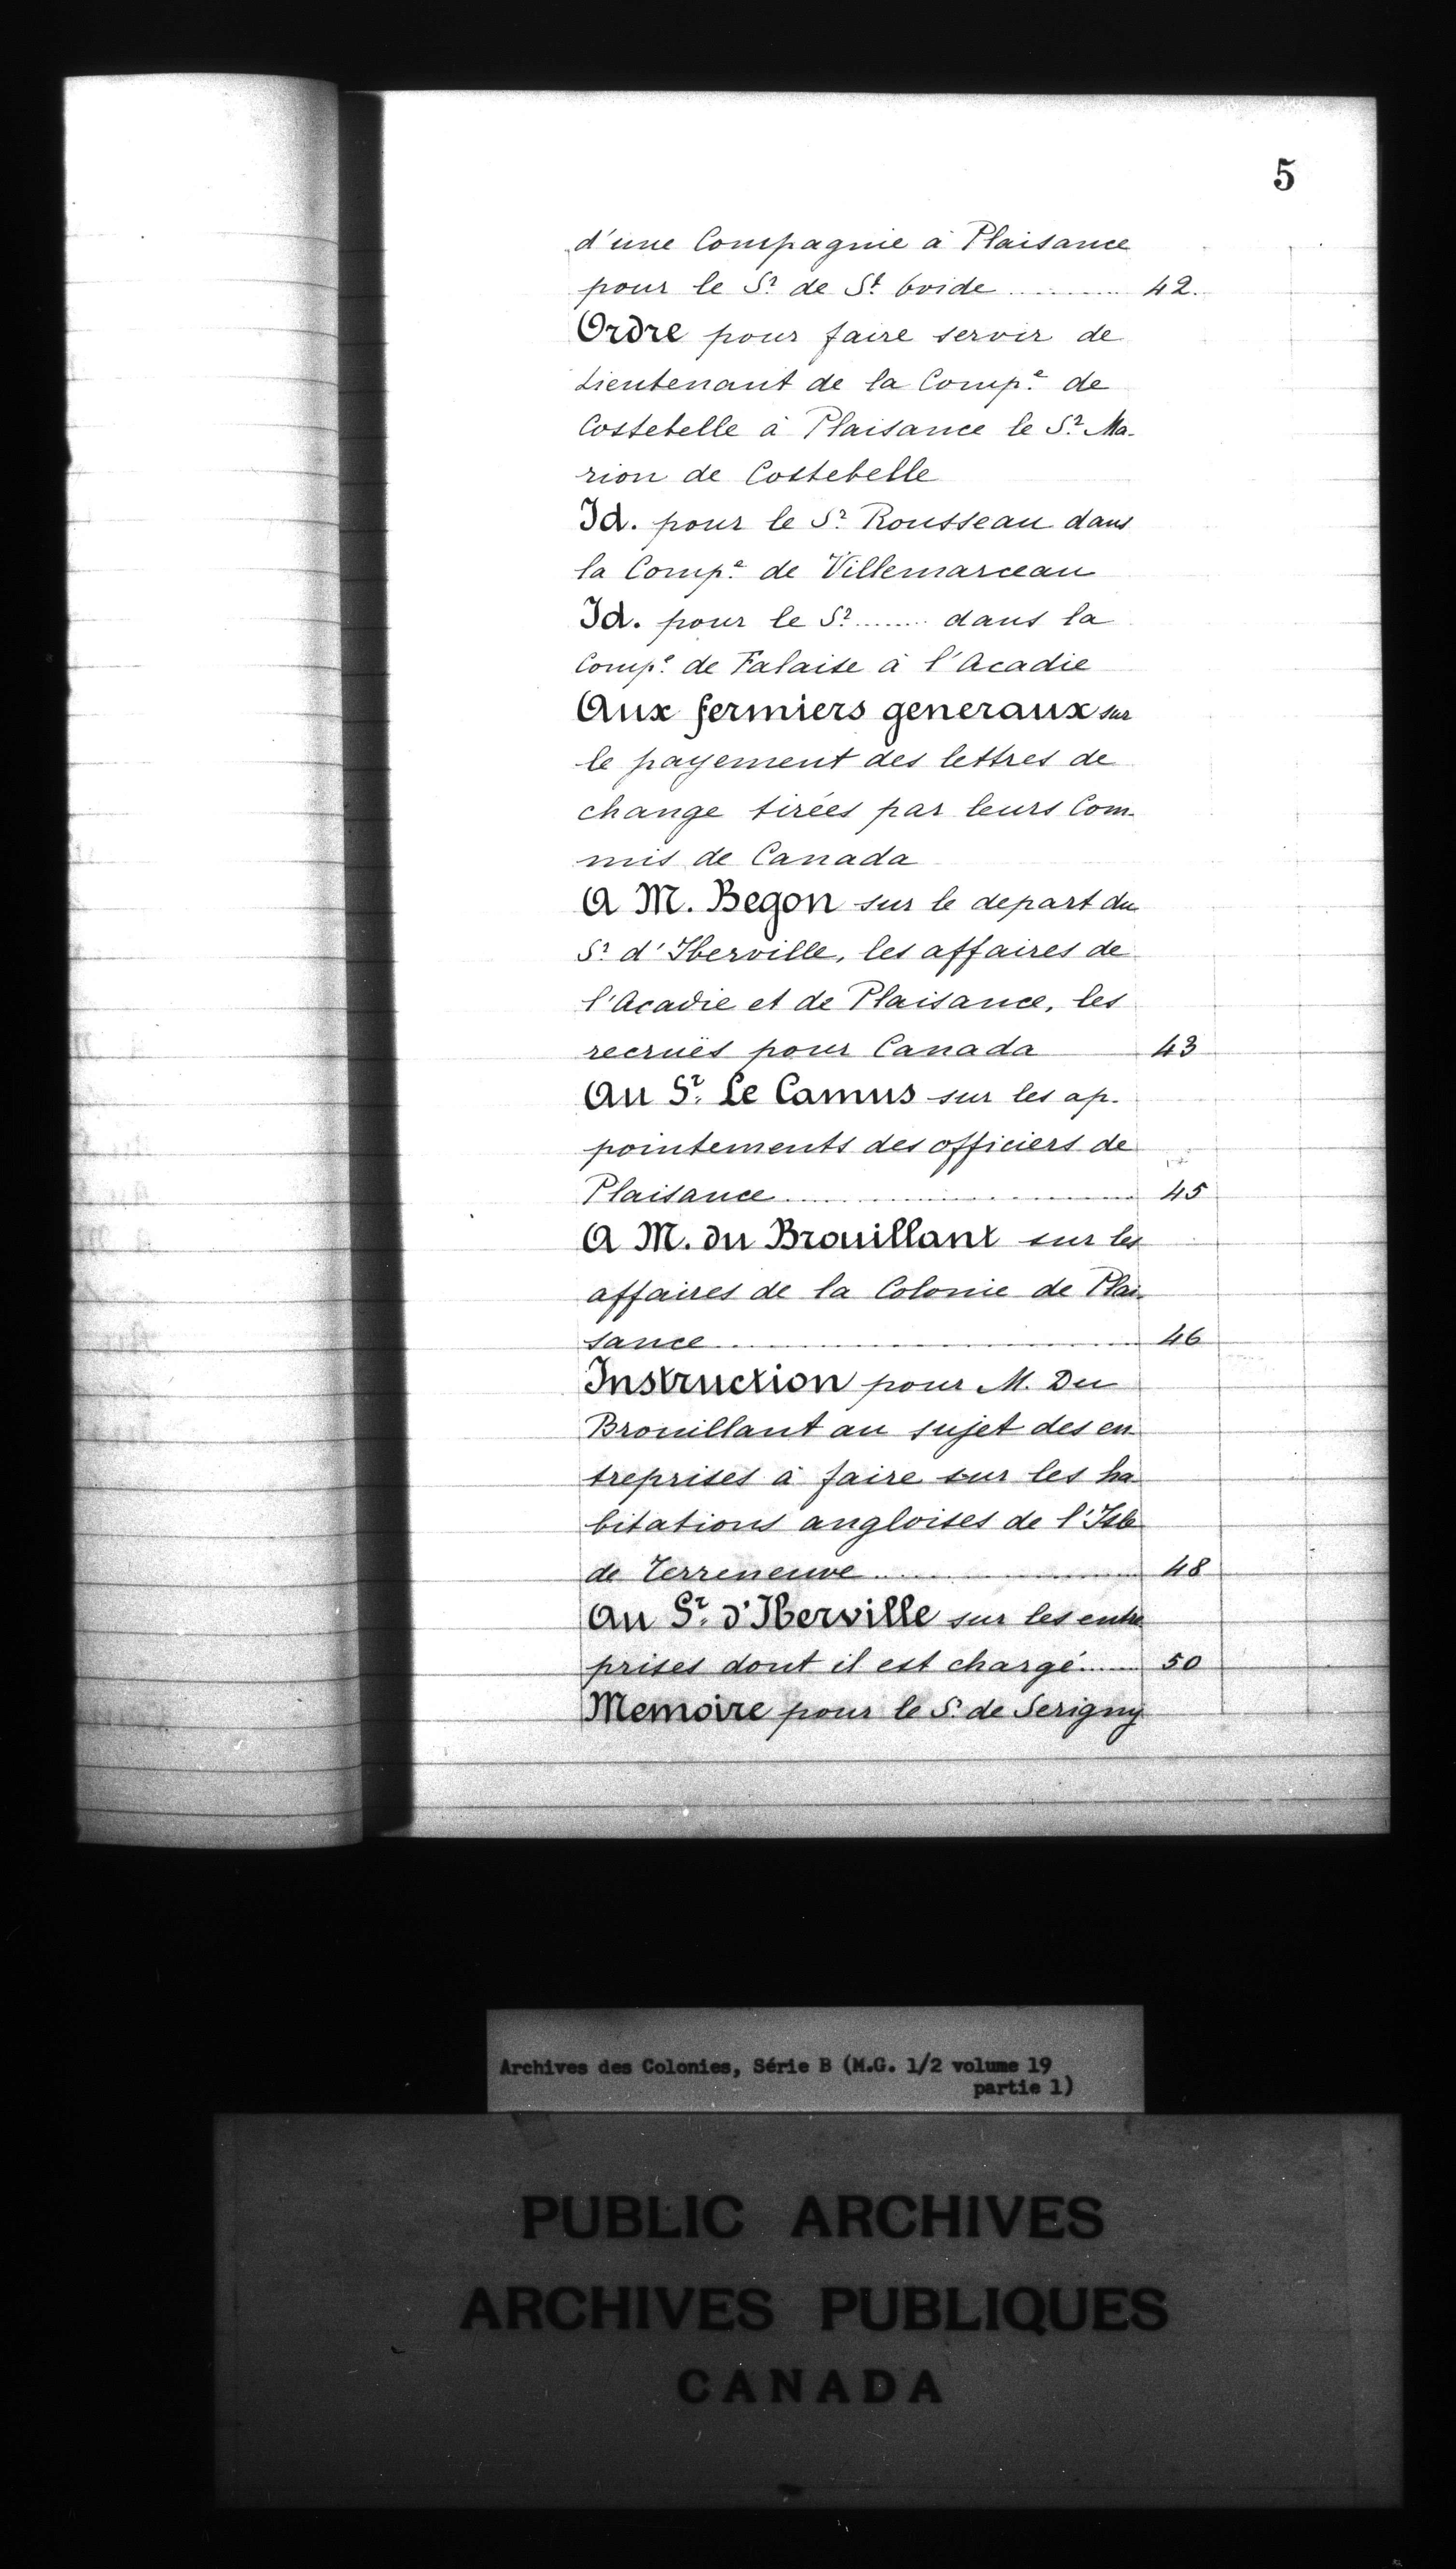 5
d'une Compagnie à Plaisance
pour le Sr. de St. Ovide .......... 42.
Ordre pour faire servir de
Lieutenant de la Compe. de
Costebelle à Plaisance le Sr. Ma-
rion de Costebelle
Id. pour le Sr. Rousseau dans
la Compe. de Villemarceau
Id. pour le Sr. ....... dans la
Compe. de Falaise à l'Acadie
Aux fermiers generaux sur
le payement des lettres de
change tirées par leurs Com-
mis de Canada
A M. Begon sur le depart du
Sr. d'Iberville, les affaires de
l'Acadie et de Plaisance, les
recruës pour Canada 43
Au Sr. Le Camus sur les ap-
pointements des officiers de
Plaisance .......... 45
A M. du Brouillant sur les
affaires de la Colonie de Plai-
sance .......... 46
Instruction pour M. Du
Brouillant au sujet des en
treprises à faire sur les ha
bitations angloises de l'Isle
de Terreneuve .......... 48
Au Sr. d'Iberville sur les entre
prises dont il est chargé ...... 50
Memoire pour le S. de Serigny
Archives des Colonies, Série B (M.G. 1/2 volume 19
partie 1)
PUBLIC ARCHIVES
ARCHIVES PUBLIQUES
CANADA